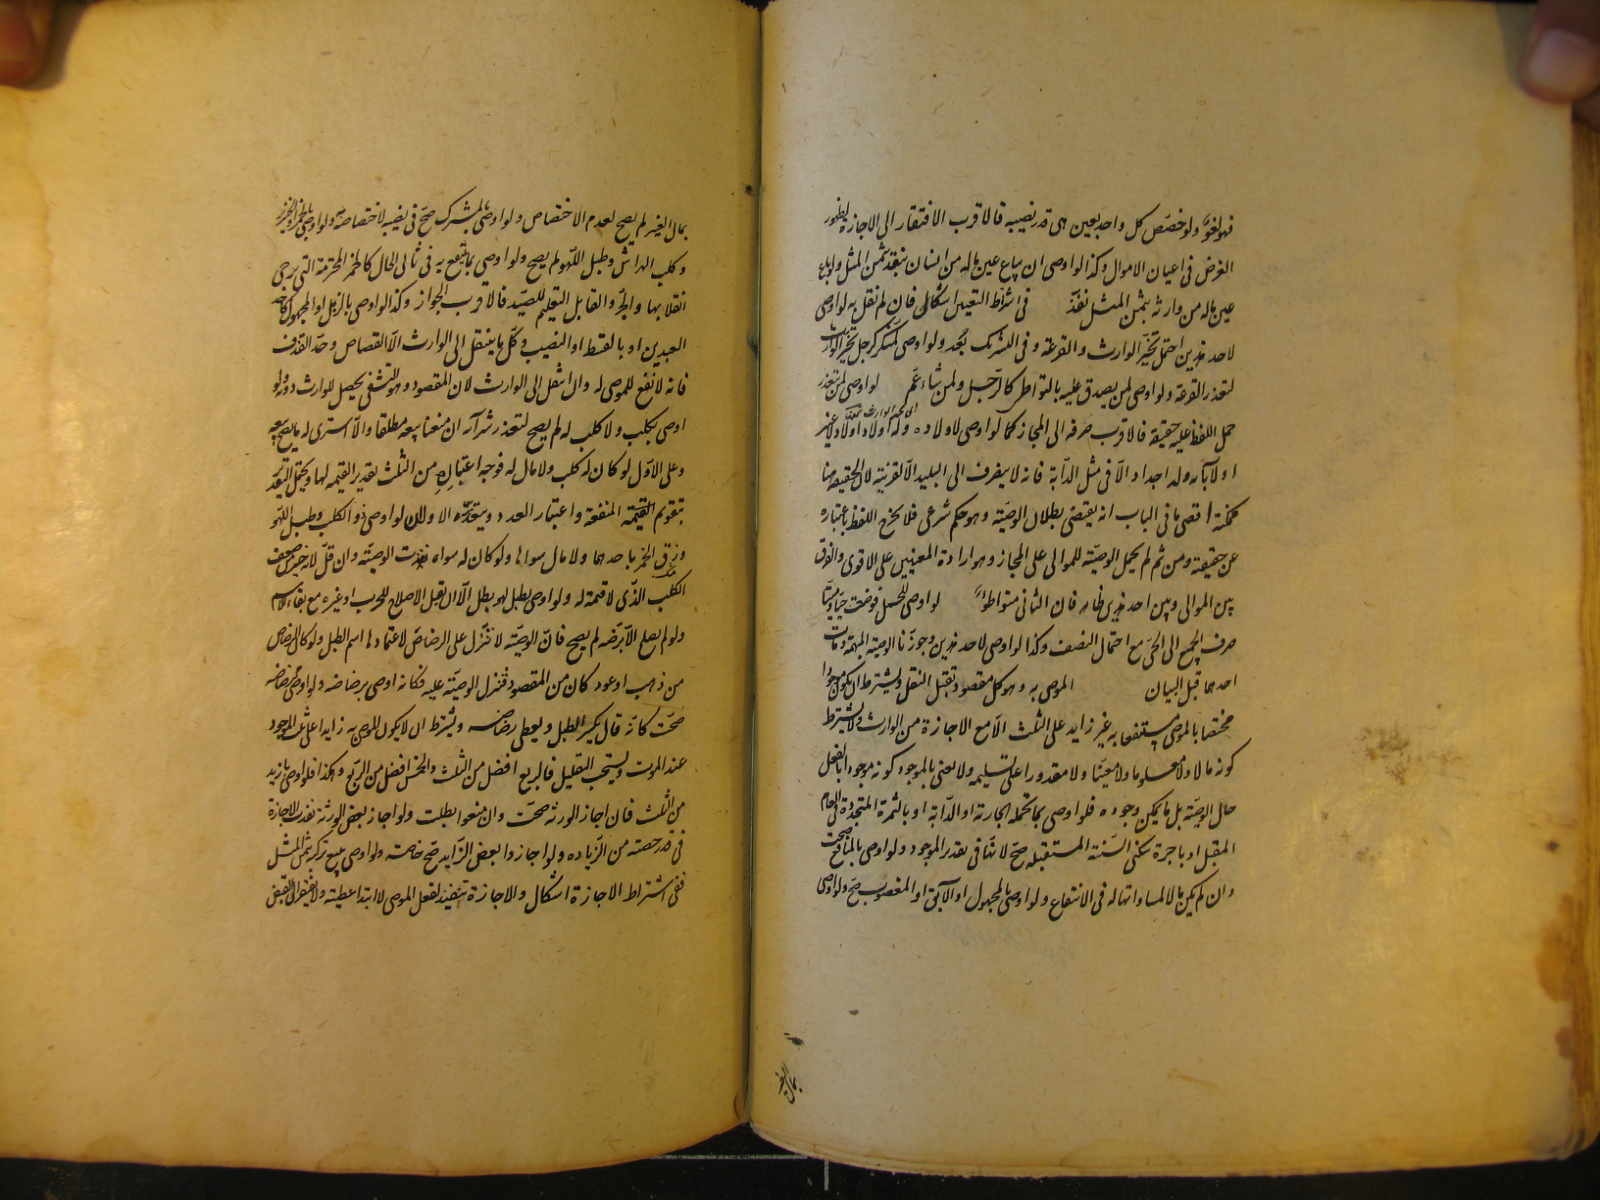 فهو لغو ولو خصص كل واحد بعين هي قدر نصيبه فالاقرب الافتقار الى الاجازة لظهور
الغرض في اعيان الاموال وكذا لو اوصى ان يباع عين ماله من انسان بنقد بثمن المثل ولو باع
عين ماله من وارثه بثمن المثل نفذ في اشتراط التعيين اشكال فان لم نقل به لو اوصى
لاحد هذين احتمل تخير الوارث والقرعة وفي التشريك بُعد ولو اوصى لمنكر كرجل تخير الوارث
لتعذر القرعة ولو اوصى لمن يصدق عليه بالتواطئ كالرجل ولمن شاء عم لو اوصى لمن تعذر
حمل اللفظ عليه حقيقة فالاقرب صرفه الى المجاز كما لو اوصى لاولاده وله اولاد اولاد لا غير
او لآبائه وله اجداد الا في مثل الدابة فانه لا يصرف الى البليد الا لقرينة لان الحقيقة هنا
ممكنة اقصى ما في الباب انه يقتضي بطلان الوصية وهو حكم شرعي فلا يخرج اللفظ باعتباره
عن حقيقته ومن ثم لم يحمل الوصية للموالي على المجاز وهو ارادة المعنيين على الاقوى والفرق
بين الموالي وبين احد هذين ظاهر فان الثاني متواطئ لو اوصى للحمل فوضعت حيا وميتا
صرف الجميع الى الحي مع احتمال النصف وكذا لو اوصى لاحد هذين وجوزنا الوصية المبهمة ومات
احدهما قبل البيان الموصى به وهو كل مقصود تقبل النقل ويشترط ان يكون موجودا
مختصا بالموصي منتفعا به غير زايد على الثلث الا مع الاجازة من الوارث ولا يشترط
كونه مالا ولا معلوما ولا معينا ولا مقدورا على تسليمه ولا يعنى بالموجود كونه موجودا بالفعل
حال الوصية بل ما يمكن وجوده فلو اوصى بما تحمله الجارية او الدابة او بالثمرة المتجددة في العام
المقبل او باجرة سكنى السنة المستقبلة صح لانها في تقدير الموجود ولو اوصى بالمنافع صحت
وان لم يكن مالا لمساواتها له في الانتفاع ولو اوصى بالمجهول او الآبق او المغصوب صح ولو اوصى
بمال الغير
بمال الغير لم يصح لعدم الاختصاص ولو اوصى بالمشترك صح في نصيبه لاختصاصه ولو اوصى بالخمر والخنزير
وكلب الهراش وطبل اللهو لم يصح ولو اوصى بما ينتفع به في ثاني الحال كالخمر المحترمة التي يرجى
انقلابها والجرو القابل التعليم للصيد فالاقرب الجواز وكذا لو اوصى بالزبل او المجهول كاحد
العبدين او بالقسط او النصيب وكل ما ينتقل الى الوارث الا القصاص وحد القذف
فانه لا نفع للموصى له وان انتقل الى الوارث لان المقصود وهو التشفي يحصل للوارث دونه ولو
اوصى بكلب ولا كلب له لم يصح لتعذر شرائه ان منعنا بيعه مطلقا والا اشترى له ما يصح بيعه
وعلى الاول لو كان له كلب ولا مال له فوجه اعتباره من الثلث بتقدير القيمة لها ويحتمل التقدير
بتقويم المنفعة واعتبار العدد الاولان لو اوصى ذو الكلب وطبل اللهو
وزق الخمر باحدهما ولا مال سواها ولو كان له سواه نفذت الوصية وان قل لانه خير من ضعف
الكلب الذي لا قيمة له ولو اوصى بطبل لهو بطل الا ان يقبل الاصلاح للحرب او غيره مع بقاء الاسم
ولو لم يصلح الا برضه لم يصح فان الوصية لا تنزل على الرضاض لاعتمادها اسم الطبل ولو كان الرضاض
من ذهب او عود كان من المقصود فتنزل الوصية عليه فكانه اوصى برضاضه ولو اوصى برضاضه
صحت كانه قال يكسر الطبل ويعطى رضاضه ويشترط ان لا يكون الموصى به زايدا على ثلث الموجود
عند الموت ويستحب التقليل فالربع افضل من الثلث والخمس افضل من الربع وهكذا فلو اوصى بازيد
من الثلث فان اجاز الورثة صحت وان منعوا بطلت ولو اجاز بعض الورثة نفذت الاجازة
في قدر حصته من الزيادة ولو اجازوا بعض الزايد صح خاصة ولو اوصى ببيع تركته بثمن المثل
ففي اشتراط الاجازة اشكال والاجازة تنفيذ لفعل الموصي لا ابتداء عطية ولا يفتقر الى القبض